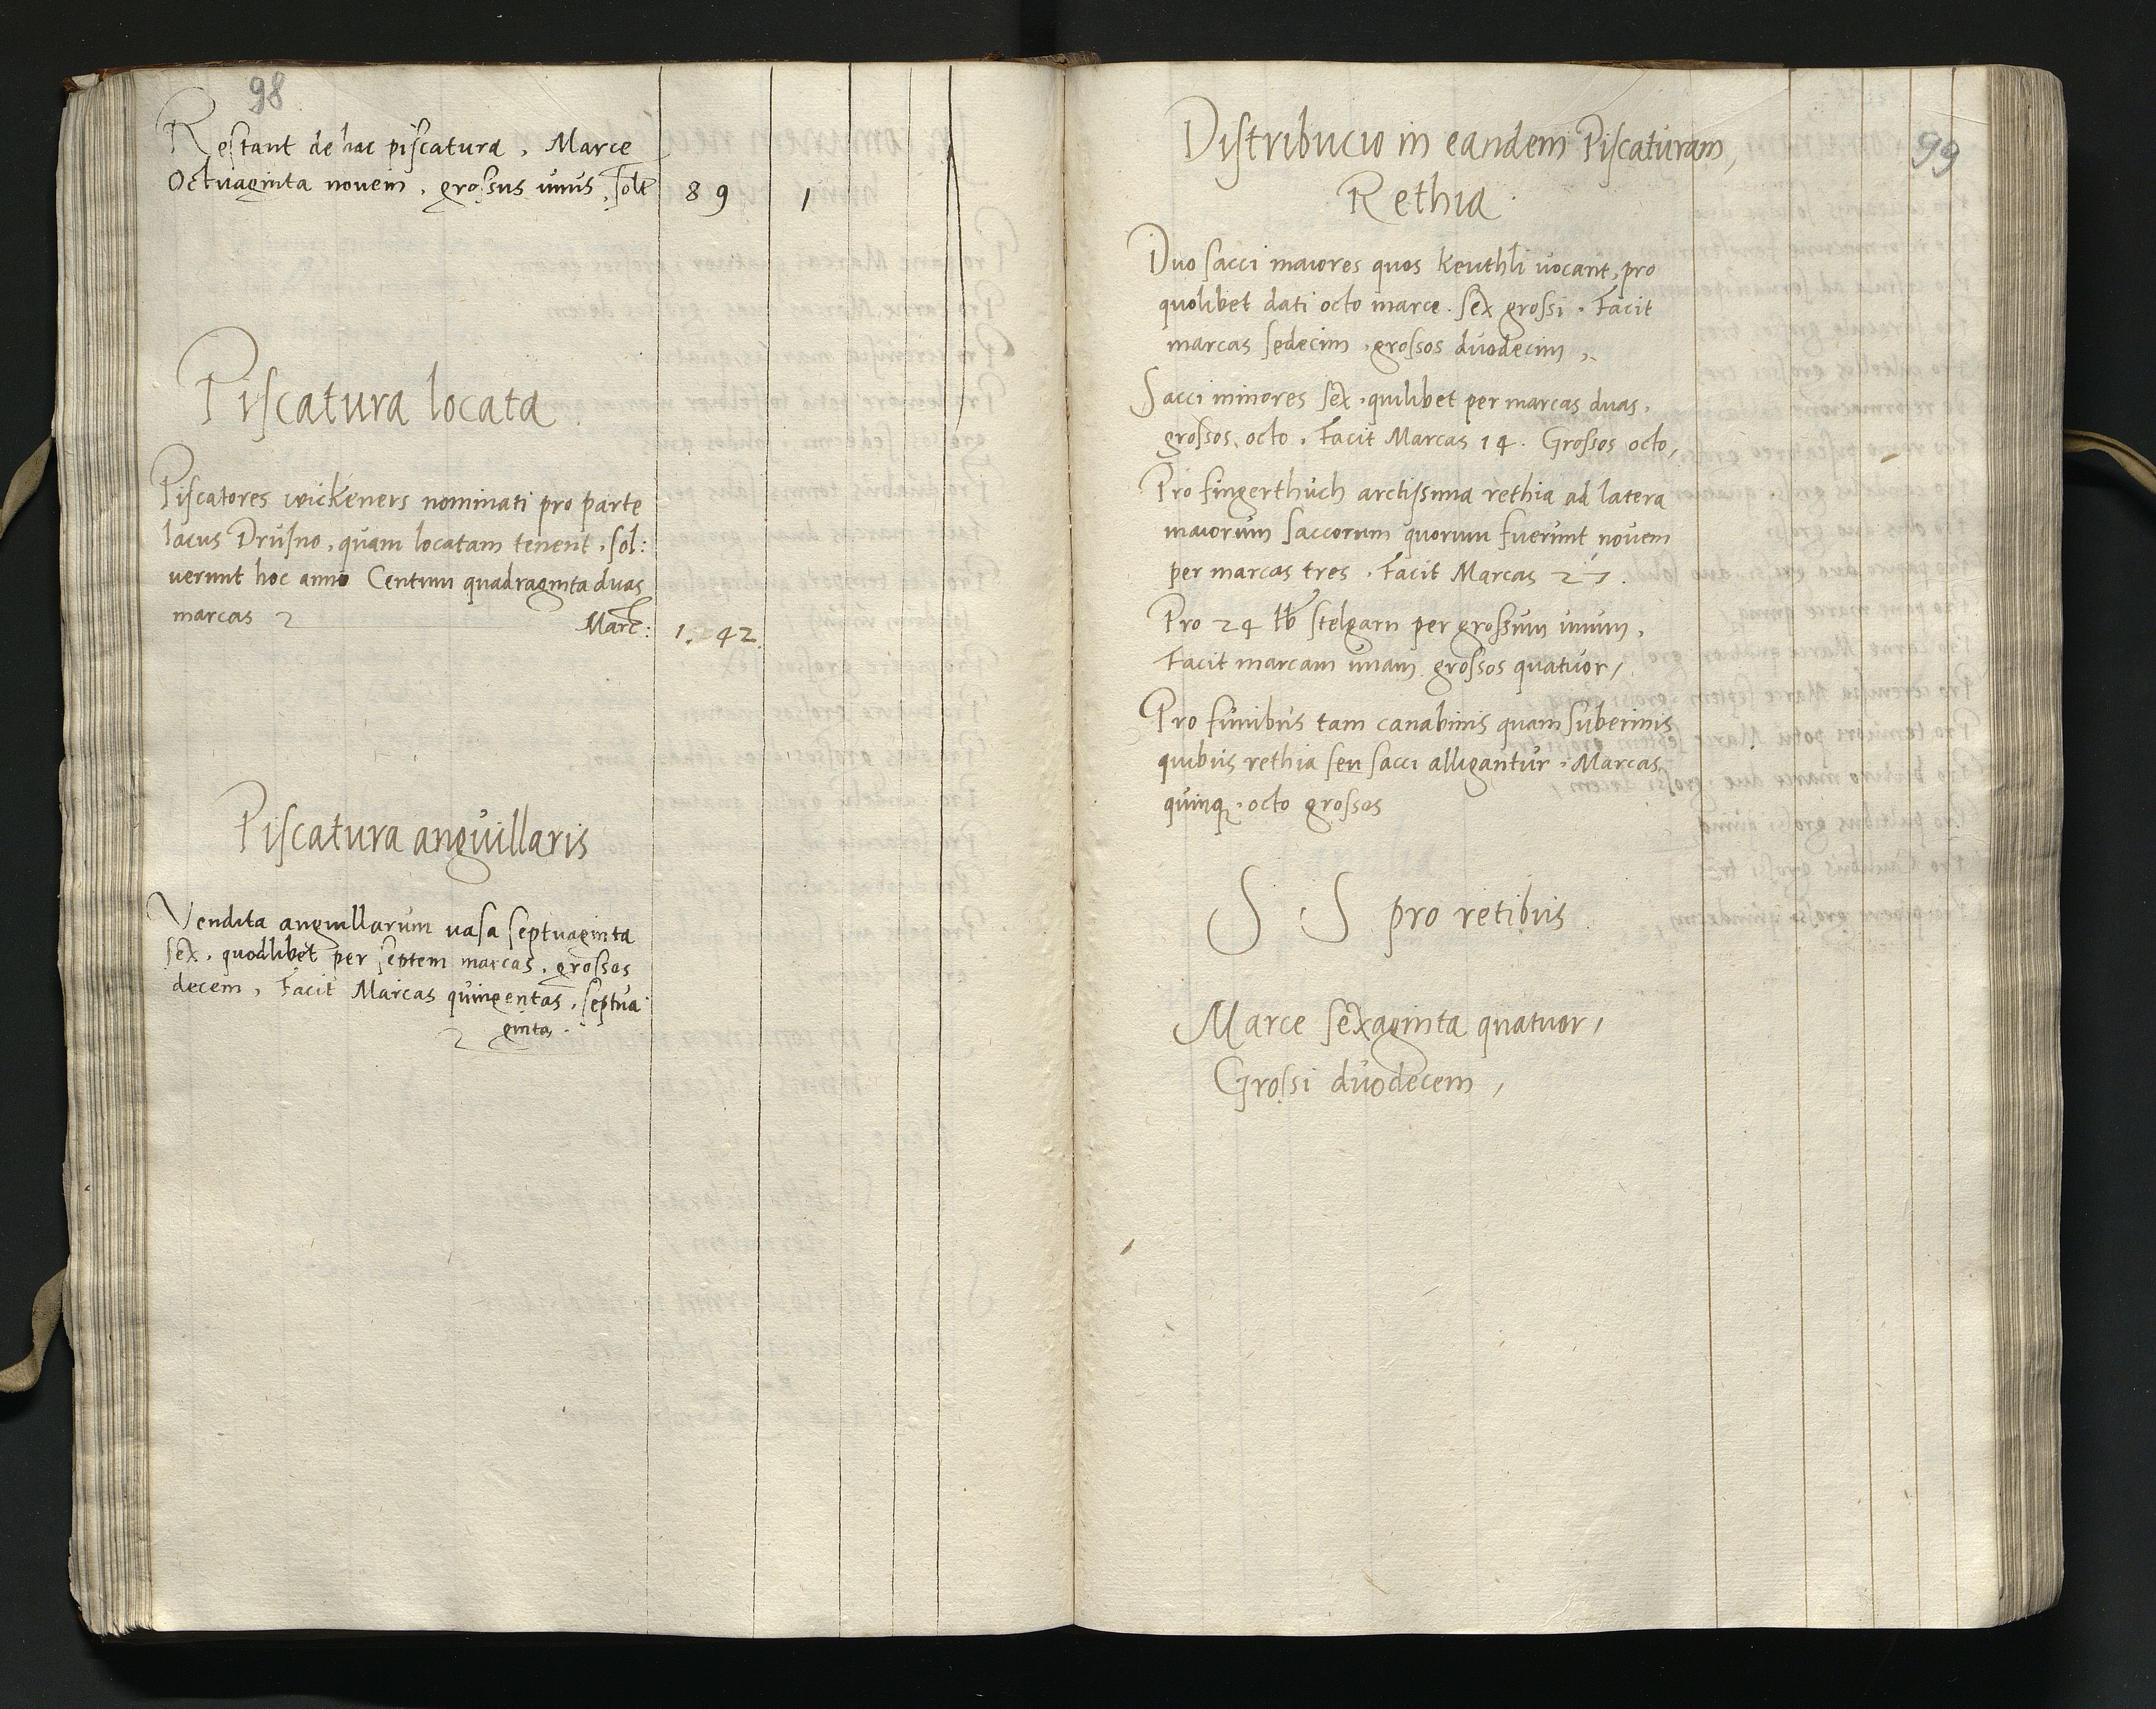 98
Restant de hac piscatura, Marce
Octuaginta novem, grossus unus, 89 1
Piscatura locata
Piscatores wickeners nominati pro parte
lacus Drusno, quam locatam tenent, sol:
verunt hoc anno Centum quadraginta duas
marcas Marc: 1.42.
Piscatura anguillaris
Vendita anguillarum vasa septuaginta
sex, quodlibet per septem marcas, grossos
decem, Facit Marcas quingentas, septua
ginta.
99
Distribucio in eandem Piscaturam,
Rethia
Duo sacci maiores quos Keuthli vocant, pro
quolibet dati octo marce. sex grossi. Facit
marcas sedecim, grossos duodecim,
Sacci minores sex, quilibet per marcas duas,
grossos, octo. Facit Marcas 14. Grossos octo,
Pro fingerthuch arctissima rethia ad latera
maiorum saccorum quorum fuerunt novem
per marcas tres. Facit Marcas 27.
Pro 24 ℔ stelgarn per grossum unum,
Facit marcam unam grossos quatuor,
Pro funibus tam canabinis quam suberinis
quibus rethia seu sacci alligantur. Marcas
quinq, octo grossos
S S pro retibus
Marce sexaginta quatuor,
Grossi duodecem,